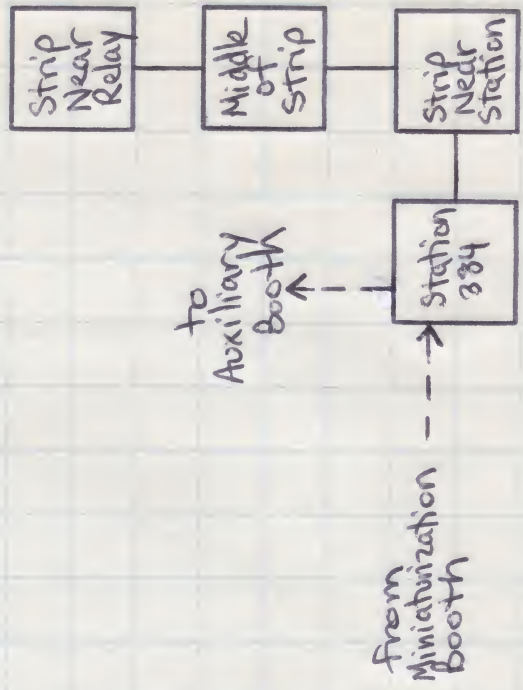 Strip
Near
Relay
Middle
of
Strip
Strip
Near
Station
Station
384
to
Auxiliary
Booth
from
Miniaturization
Booth